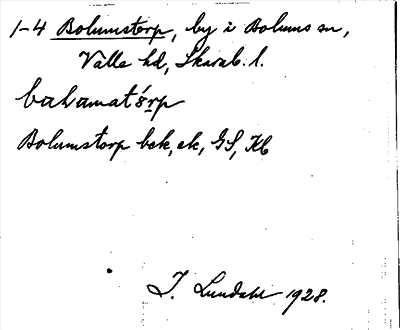 1-4 Bolumstorp, by i Bolums sn,
Valle hd, Skarab. l.
Bolumstorp bek, ek, GS, Kb
I. Lundahl 1928.